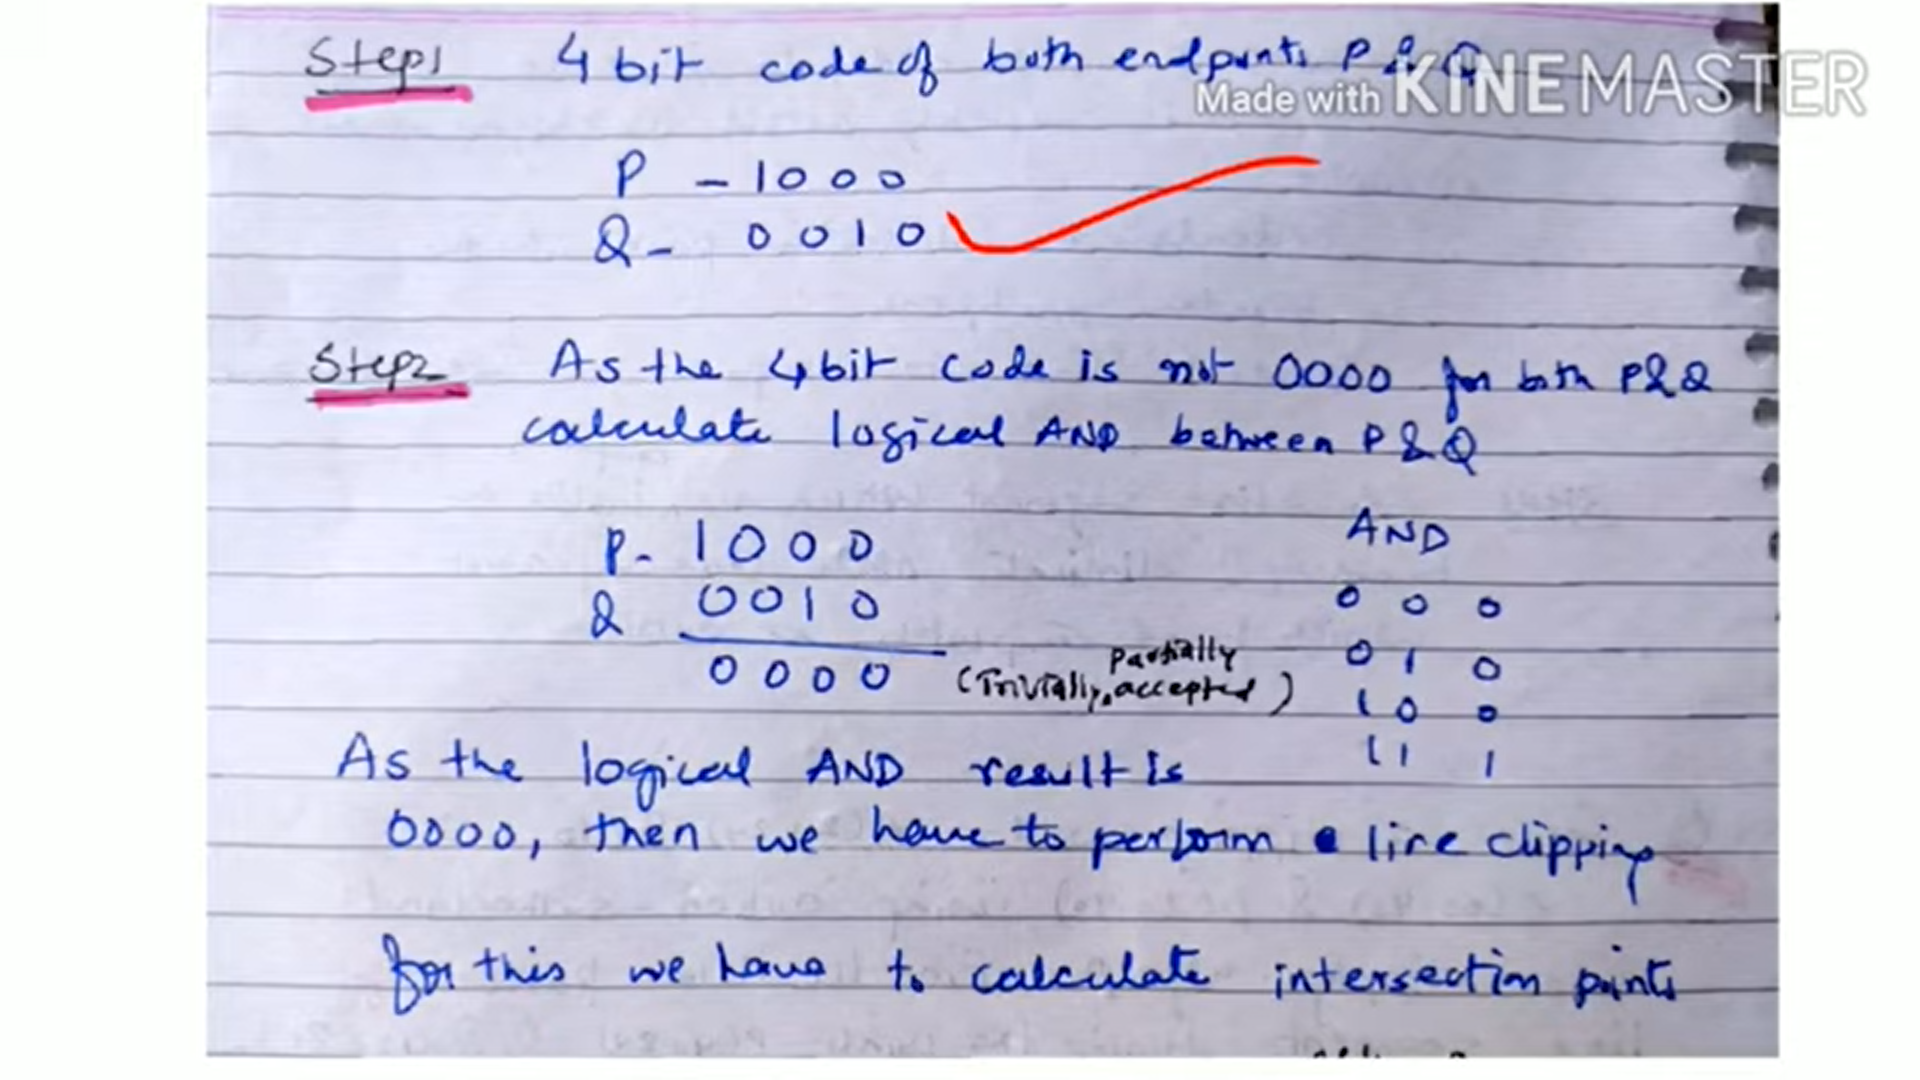 Step1 4 bit code of both endpoints P & Q
Made with KINEMASTER
P - 1000
Q - 0010
Step2 As the 4 bit code is not 0000 for both P & Q
calculate logical AND between P & Q
AND
P - 1000
0 0 0
Q 0010
0 1 0
0000 (Trivially, partially accepted)
1 0 0
1 1 1
As the logical AND result is
0000, then we have to perform line clipping
for this we have to calculate intersection points